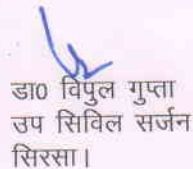 डा0 विपुल गुप्ता
उप सिविल सर्जन
सिरसा।